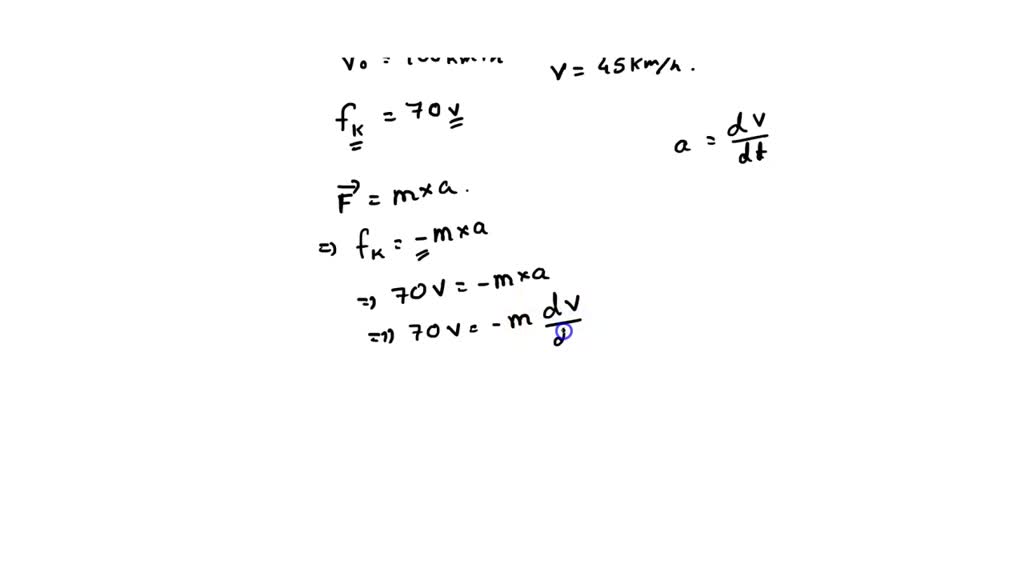 v = 45 Km/h.
f_K = 70 v
a = dv/dt
F⃗ = m×a.
=) f_K = -m×a
=) 70 v = -m×a
=) 70 v = -m dv/d